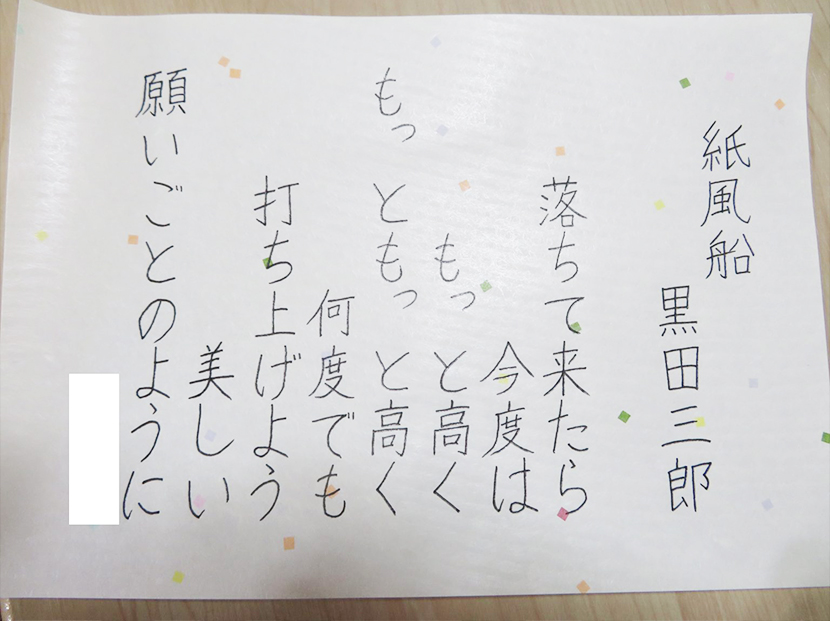 紙風船
黒田三郎
落ちて来たら
今度は
もっと高く
もっともっと高く
何度でも
打ち上げよう
美しい
願いごとのように